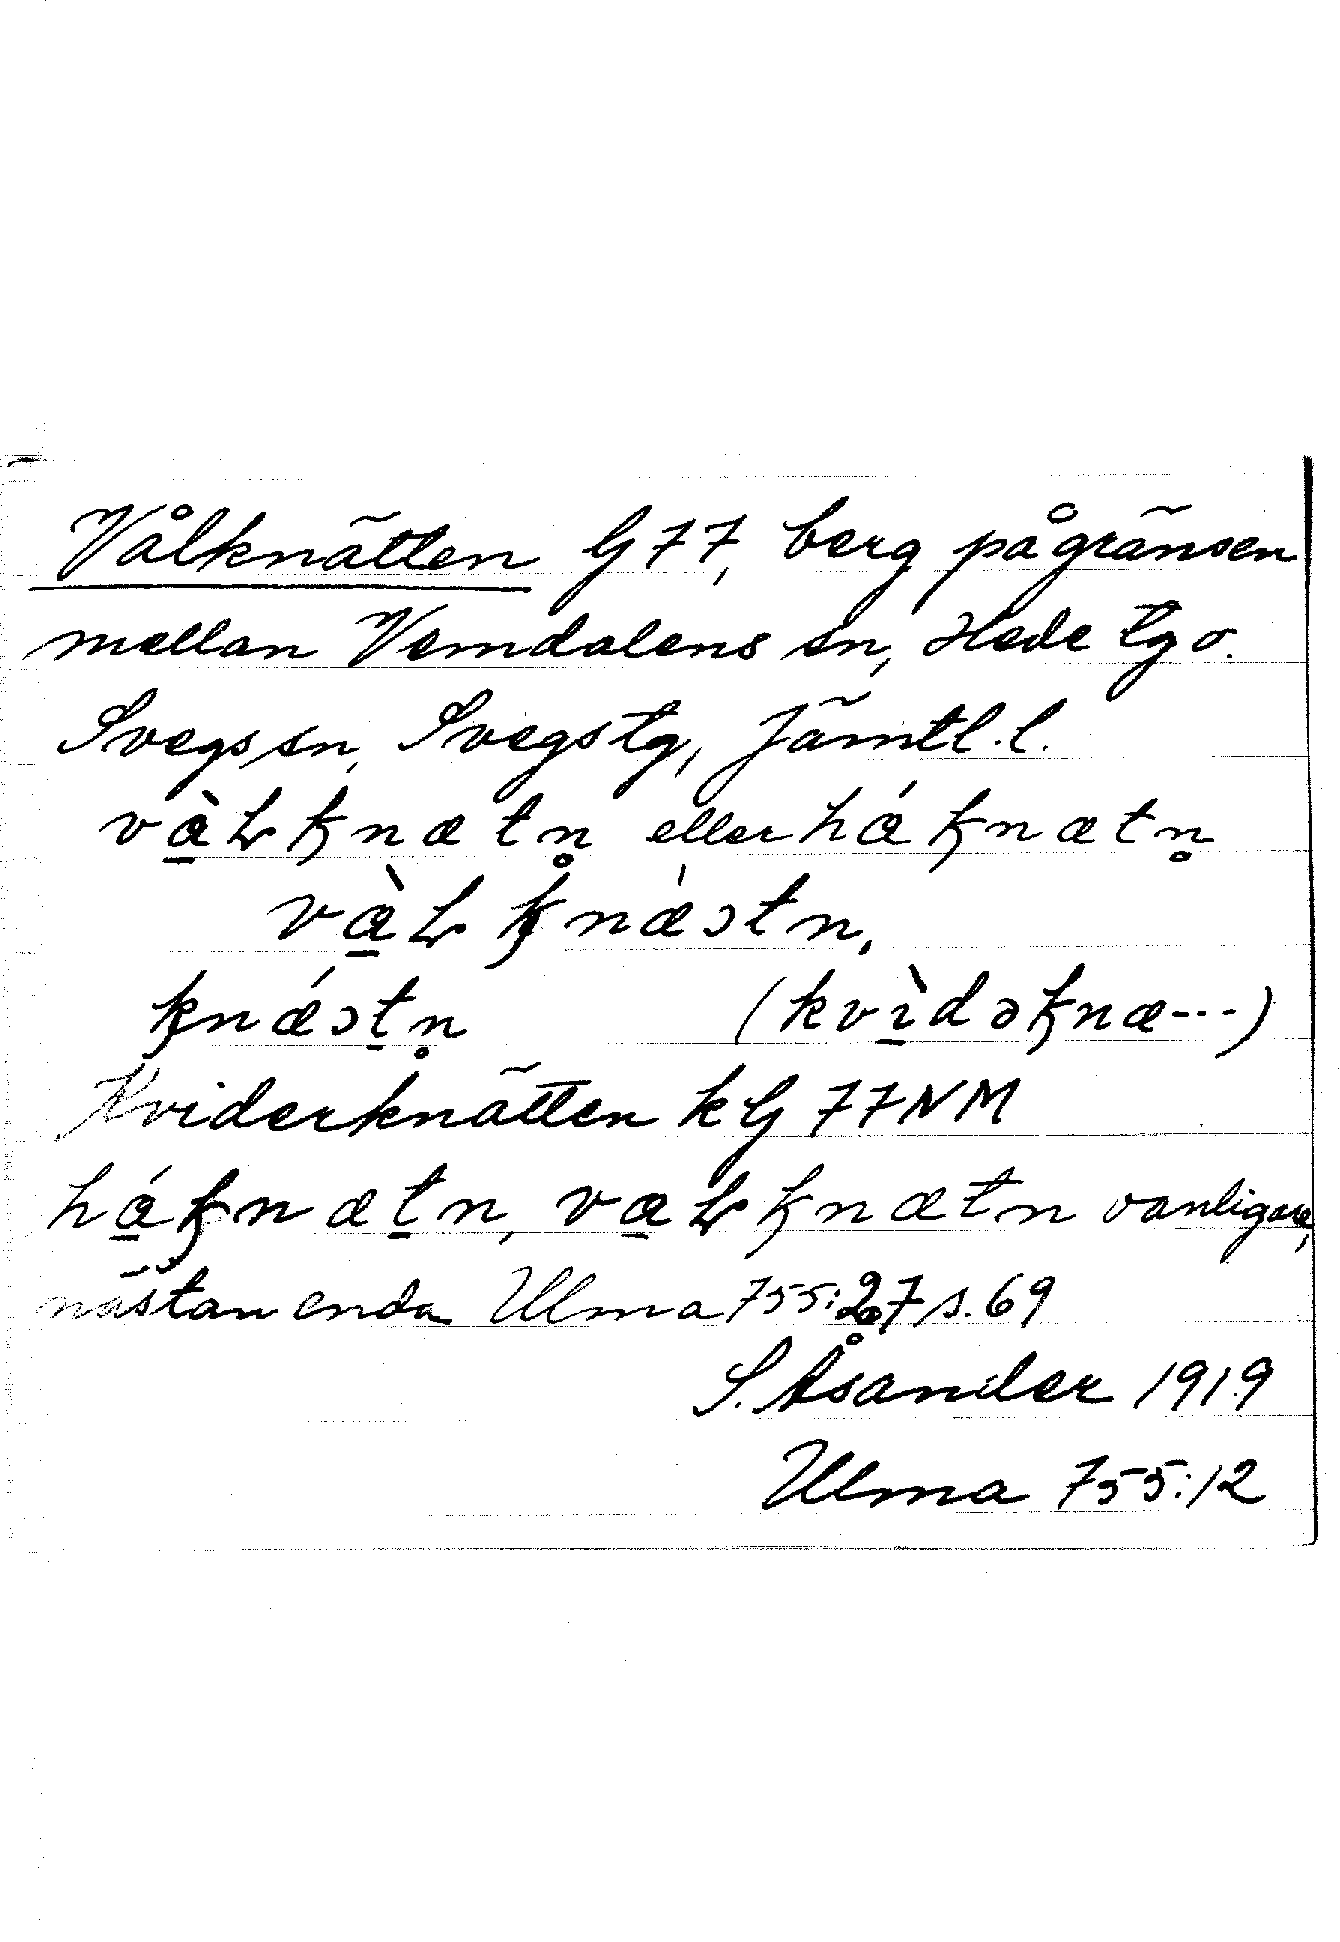 Vålknätten G 77, berg på gränsen
mellan Vemdalens sn, Hede tg o.
Svegs sn, Svegs tg, Jämtl. l.
và̱ⱡꞣnætn̥ eller háꞣnætn̥
và̱ⱡꞣnæ̀ɔtn,
ꞣnǽɔṯn̥ (kvì̱dəꞣnæ---)
Kviderknätten kG 77 NM
há̱ꞣnæṯn, va̱ⱡꞣnætn vanligare,
nästan enda Ulma 755:27 s. 69
S. Åsander 1919
Ulma 755:12